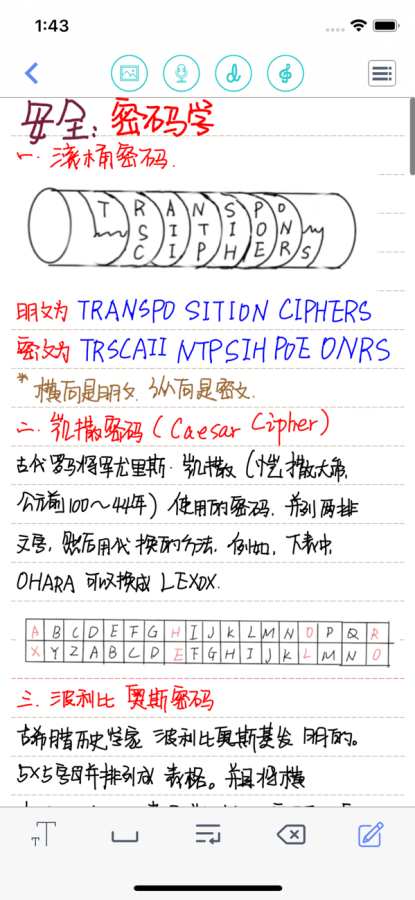 1:43
安全: 密码学
一. 滚桶密码.
T R A N S P O
S I T I O N
C I P H E R S
明文为 TRANSPO SITION CIPHERS
密文为 TRSCAII NTPSIH POE ONRS
* 横向是明文, 纵向是密文.
二. 凯撒密码 (Caesar Cipher)
古代罗马将军尤里斯·凯撒 (恺撒大帝,
公元前100～44年) 使用的密码. 并列两排
文字, 然后用代换的方法. 例如, 下表中,
OHARA 可以换成 LEXOX.
A B C D E F G H I J K L M N O P Q R
X Y Z A B C D E F G H I J K L M N O
三. 波利比奥斯密码
古希腊历史学家 波利比奥斯 发明的。
5×5字母排列成 表格。并且将横
T